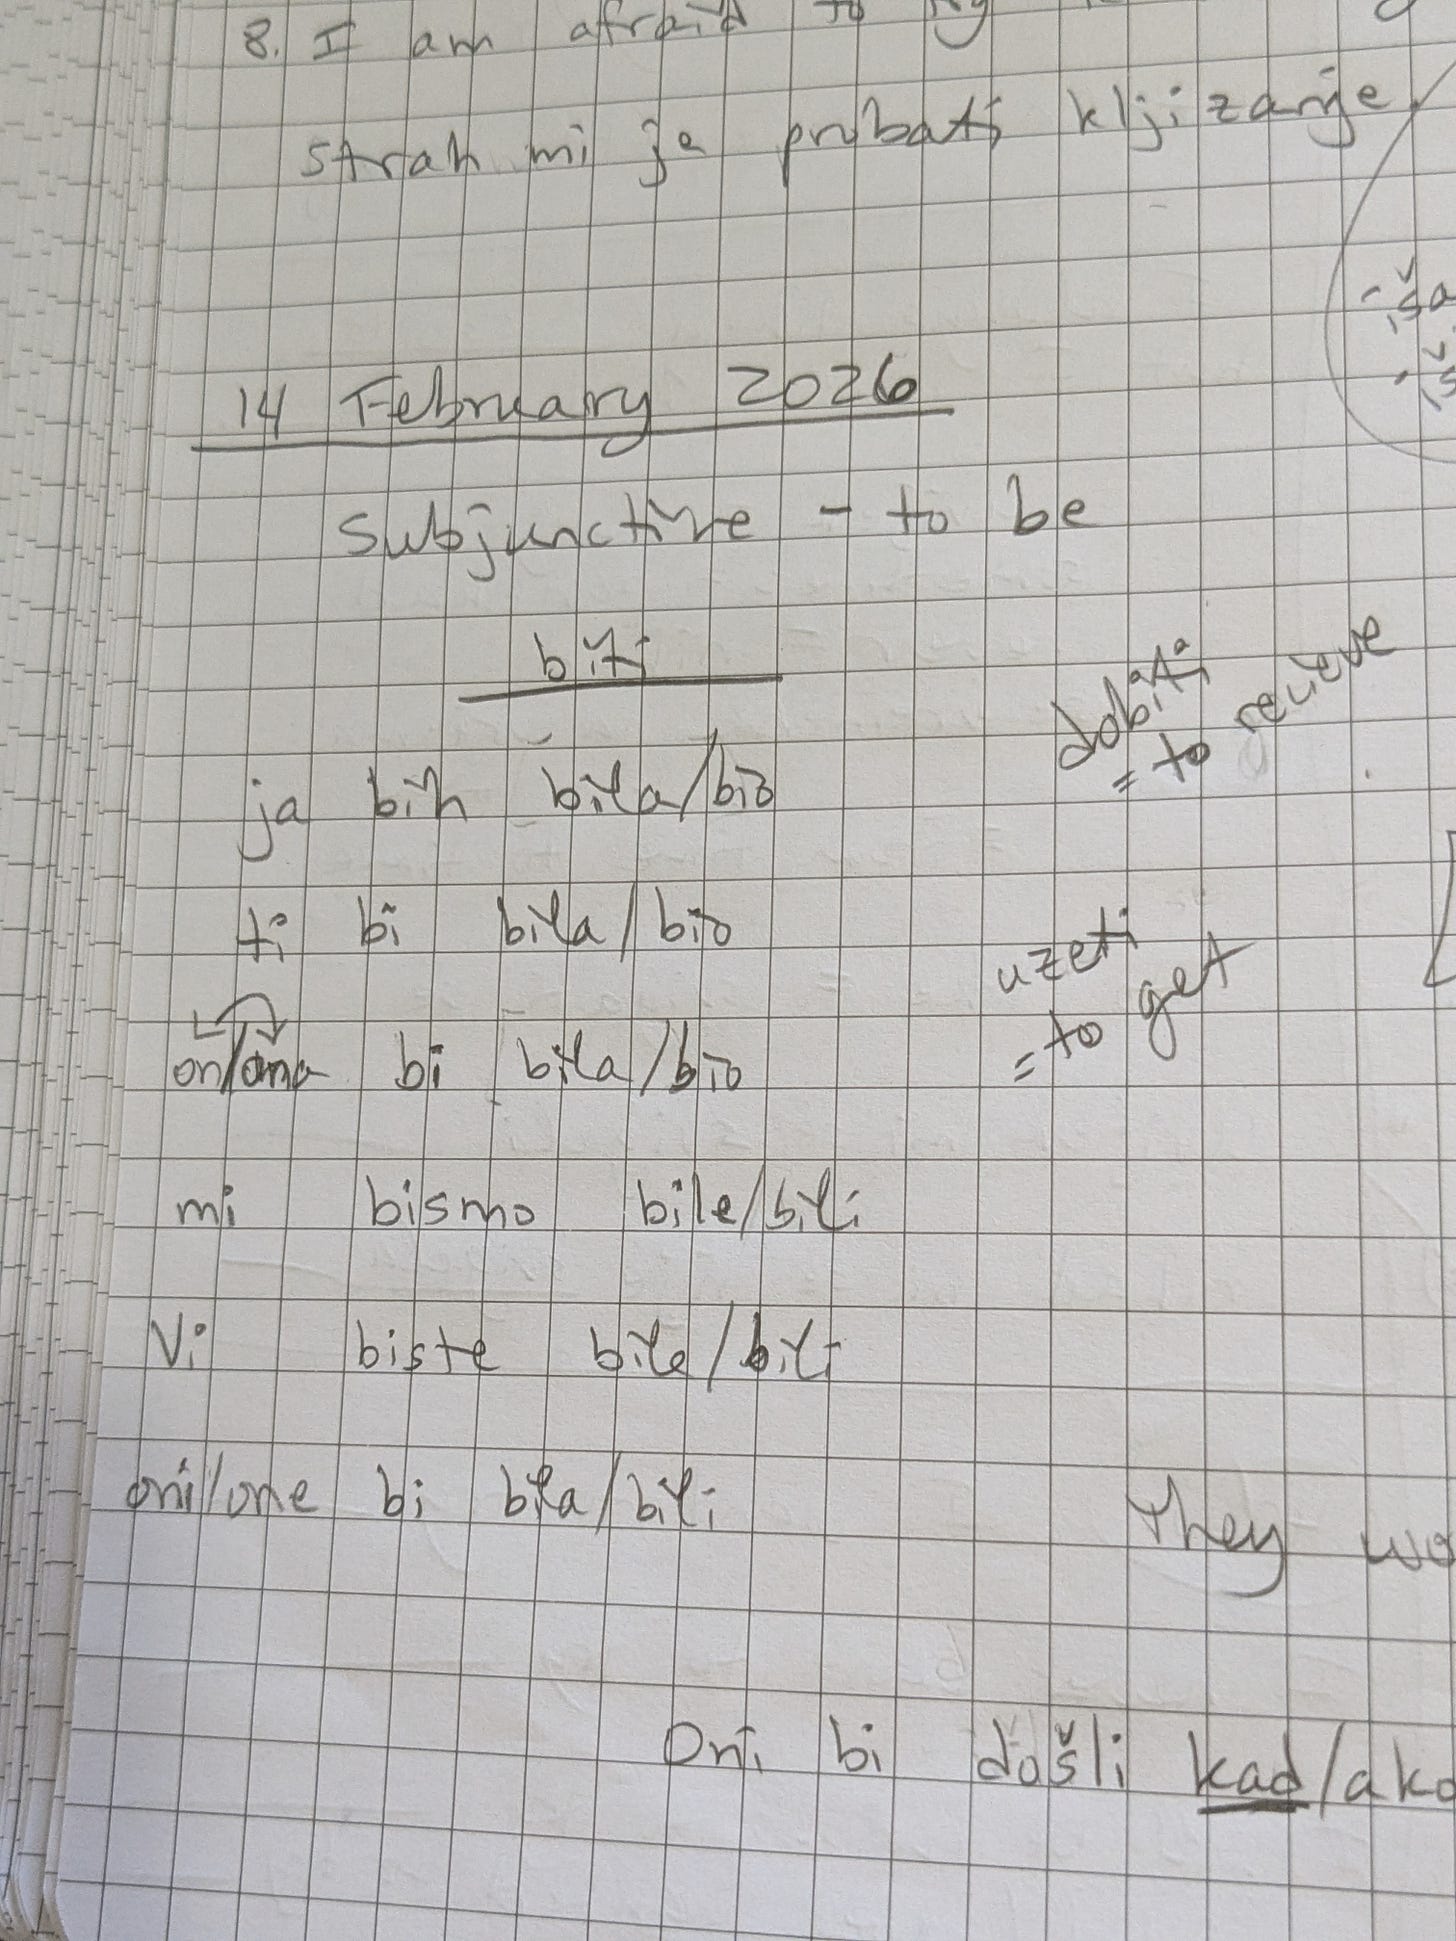 8. I am afraid to
strah mi je probati kljizanje
14 February 2026
Subjunctive - to be
biti
dobiti
= to recieve
ja bih bila/bio
ti bi bila/bio
uzeti
= to get
on/ona bi bila/bio
mi bismo bile/bili
Vi biste bile/bili
oni/one bi bila/bili
They
Oni bi došli kad/ako